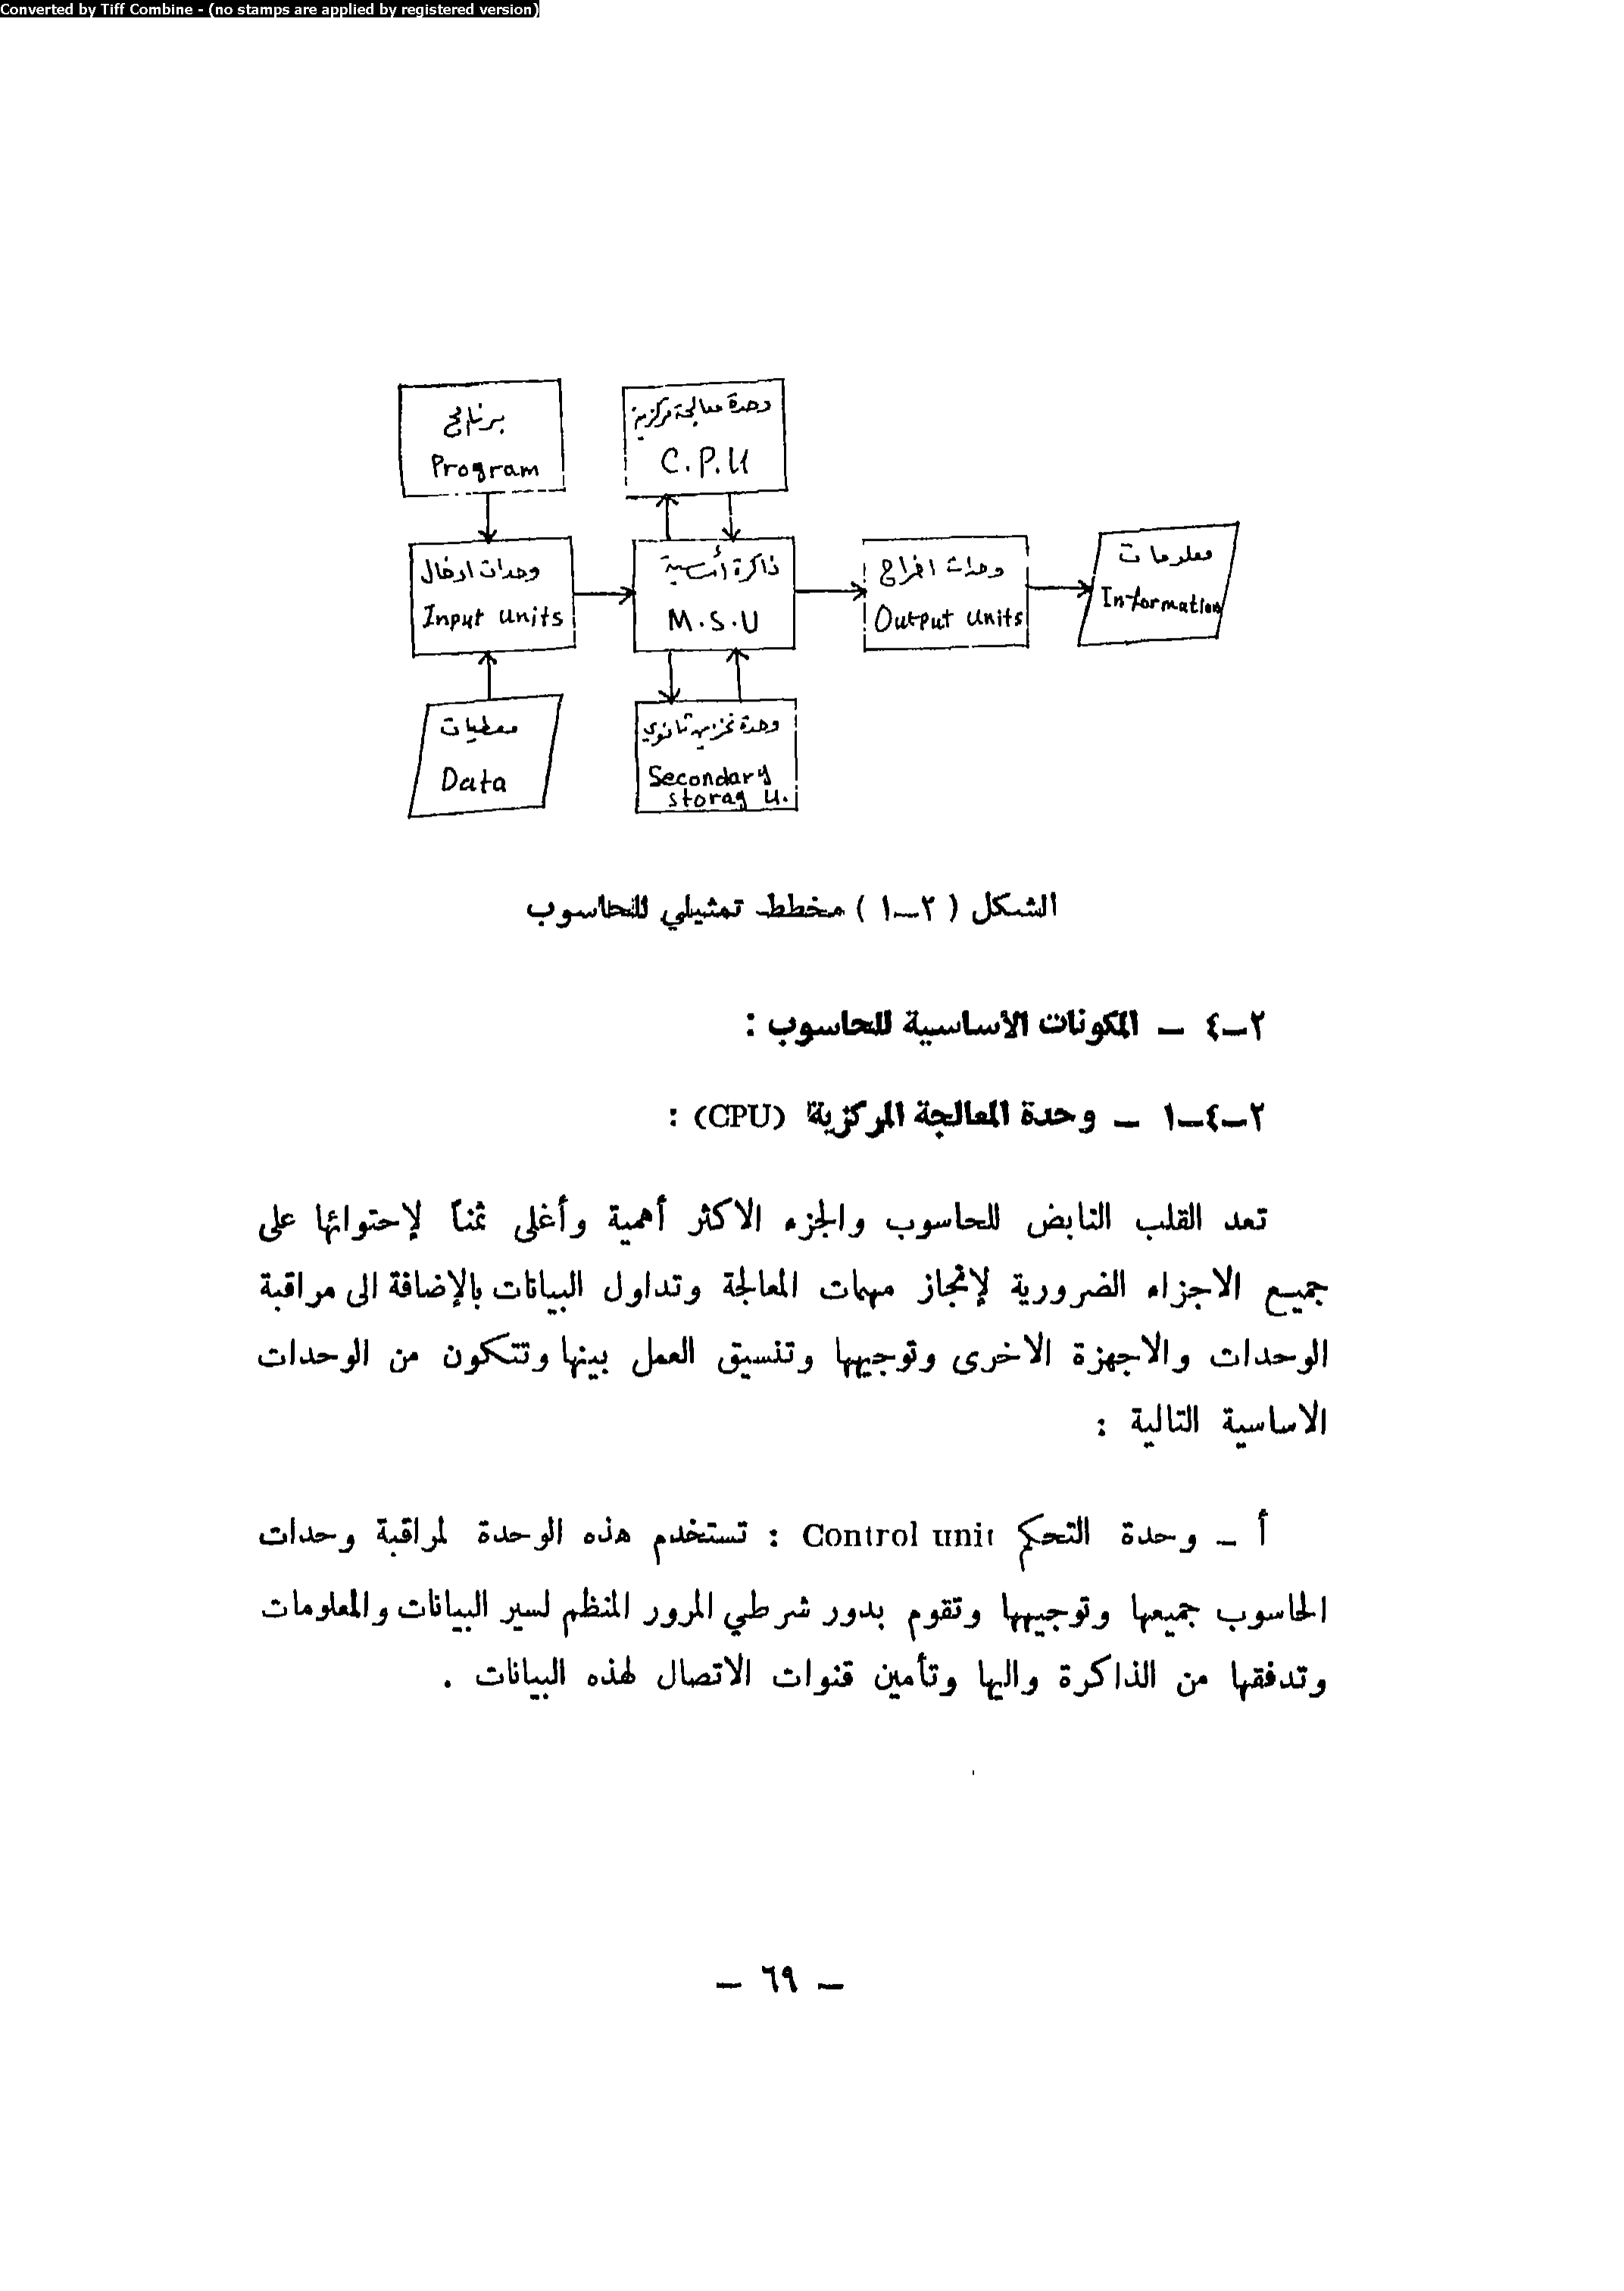 Converted by Tiff Combine - (no stamps are applied by registered version)
برنامج
Program
وحدة معالجة مركزية
C.P.U
وحدات ادخال
Input units
ذاكرة أساسية
M.S.U
وحدات اخراج
Output units
معلومات
Information
معطيات
Data
وحدة تخزين ثانوي
Secondary
storag u.
الشكل ( ٢–١ ) مخطط تمثيلي للحاسوب
٢–٤ – المكونات الأساسية للحاسوب :
٢–٤–١ – وحدة المعالجة المركزية (CPU) :
تعد القلب النابض للحاسوب والجزء الاكثر أهمية وأغلى ثمناً لإحتوائها على
جميع الاجزاء الضرورية لإنجاز مهمات المعالجة وتداول البيانات بالإضافة الى مراقبة
الوحدات والاجهزة الاخرى وتوجيهها وتنسيق العمل بينها وتتكون من الوحدات
الاساسية التالية :
أ – وحدة التحكم Control unit : تستخدم هذه الوحدة لمراقبة وحدات
الحاسوب جميعها وتوجيهها وتقوم بدور شرطي المرور المنظم لسير البيانات والمعلومات
وتدفقها من الذاكرة واليها وتأمين قنوات الاتصال لهذه البيانات .
– ٦٩ –